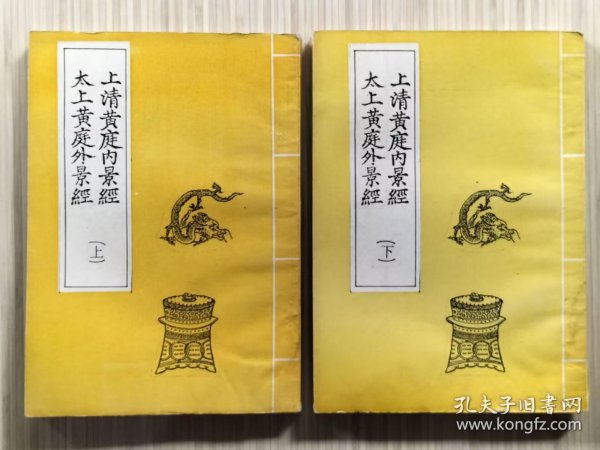 上清黃庭內景經
太上黃庭外景經
(上)
上清黃庭內景經
太上黃庭外景經
(下)
孔夫子旧書网
www.kongfz.com